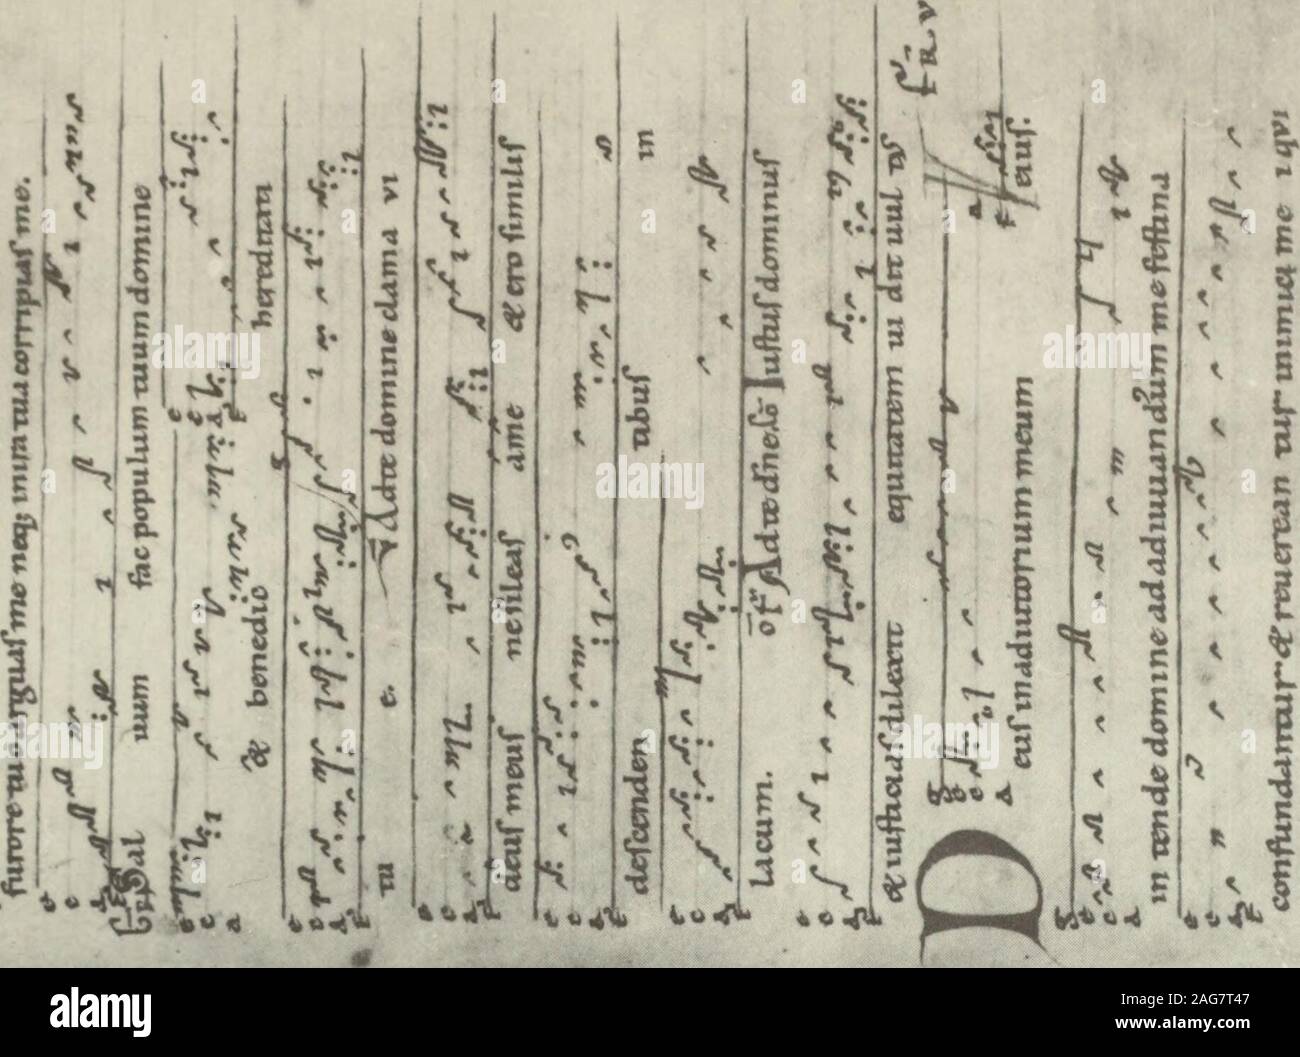 furore tuo arguas me neq; in ira tua corripias me.
Sal uum fac populum tuum domine
& benedic heredita
tu e. Ad te domine clama vi
deus meus ne sileas a me & ero similis
descenden tibus in
lacum. Ad te dne. Iustus dominus
& iusticias dilexit equitatem ui dit uul
D eus in adiutorium meum eius.
in tende domine ad adiuuandum me festina
confundantur & reuerean tur inimici me i qui
alamy
Image ID: 2AG7T47
www.alamy.com